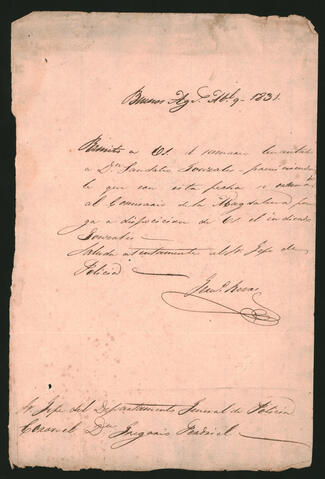 Buenos Ay.s Ab.l 9. 1831.
Remito a VS. el sumario levantado
a Dn Sandalio Gonzales previniendo
le que con esta fecha se ordena
al Comisario de la Magdalena pon
ga a disposicion de VS. el indicado
Gonzales
Saluda atentamente al Sr. Jefe de
Policia
Sr Jefe del Departamento General de Policia
Coronel Dn Gregorio Perdriel